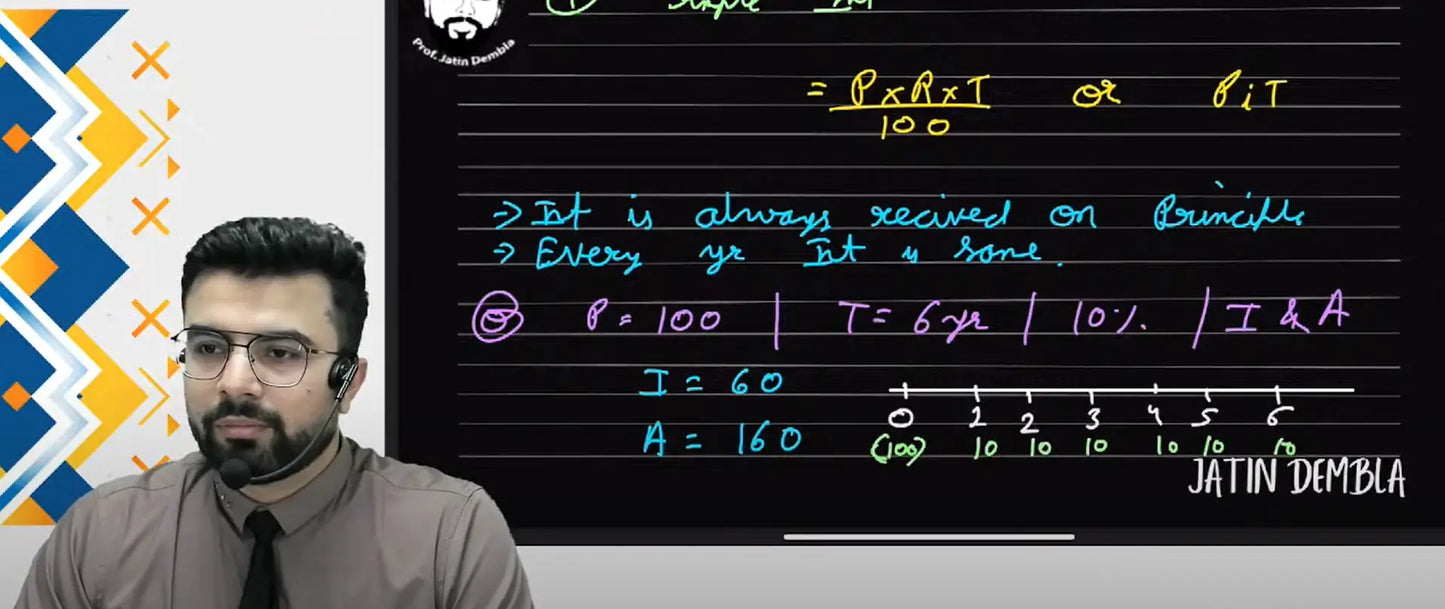 ① Simple Int
Prof. Jatin Dembla
= P x R x T / 100 or P i T
→ Int is always recived on Principle
→ Every yr Int is same.
Q P = 100 | T = 6 yr | 10% | I & A
I = 60
0 1 2 3 4 5 6
A = 160
(100) 10 10 10 10 10 10
JATIN DEMBLA